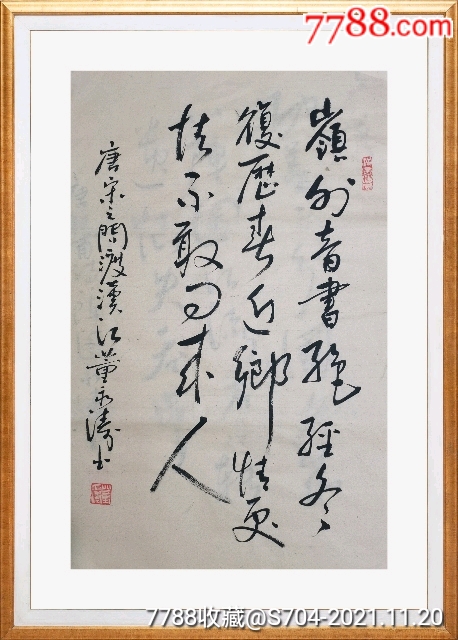 7788.com
嶺外音書絕經冬
復歷春近鄉情更
怯不敢问来人
唐宋之问渡漢江董永濤书
7788收藏@S704-2021.11.20